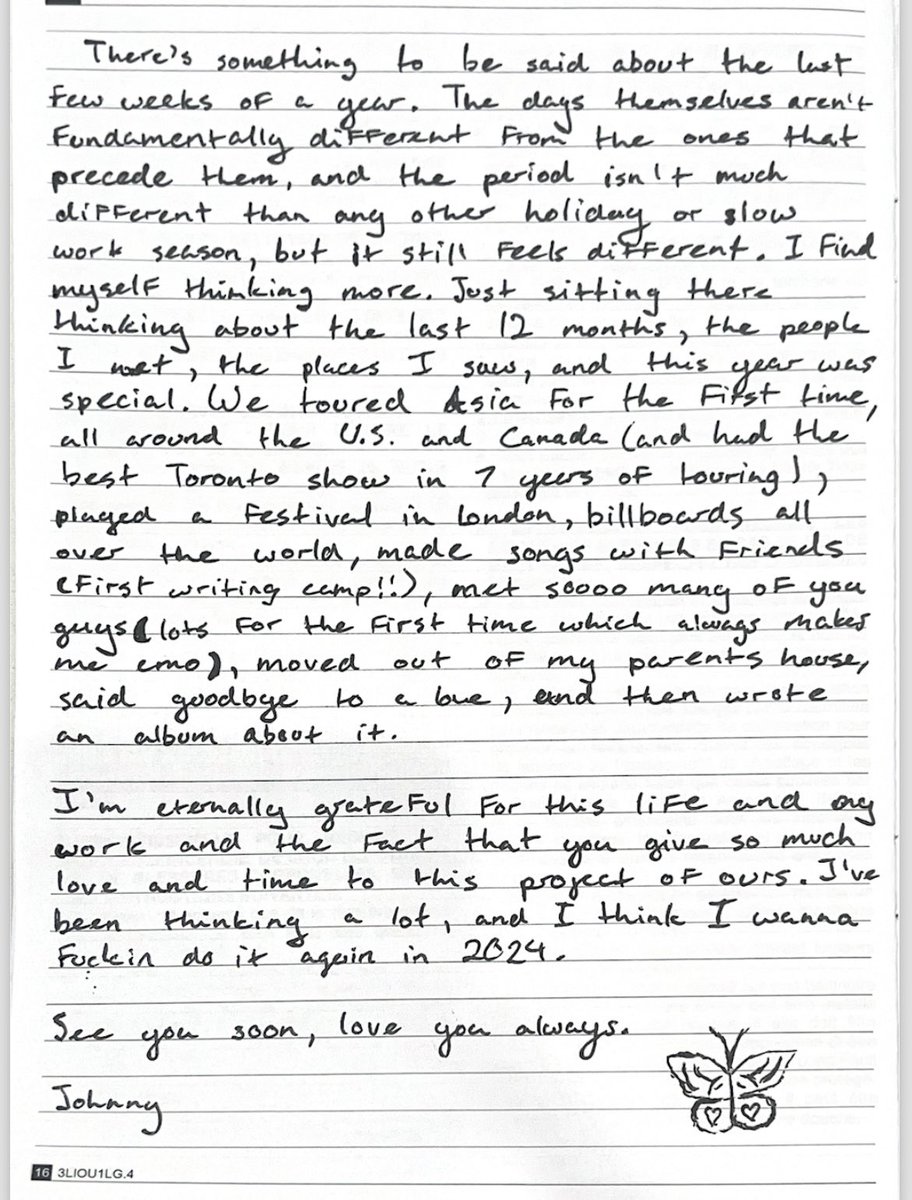 There's something to be said about the last
few weeks of a year. The days themselves aren't
fundamentally different from the ones that
precede them, and the period isn't much
different than any other holiday or slow
work season, but it still feels different. I find
myself thinking more. Just sitting there
thinking about the last 12 months, the people
I met, the places I saw, and this year was
special. We toured Asia for the first time,
all around the U.S. and Canada (and had the
best Toronto show in 7 years of touring),
played a festival in London, billboards all
over the world, made songs with friends
(first writing camp!!), met soooo many of you
guys (lots for the first time which always makes
me emo), moved out of my parents house,
said goodbye to a love, and then wrote
an album about it.
I'm eternally grateful for this life and my
work and the fact that you give so much
love and time to this project of ours. I've
been thinking a lot, and I think I wanna
fuckin do it again in 2024.
See you soon, love you always.
Johnny
16 3LIOU1LG.4